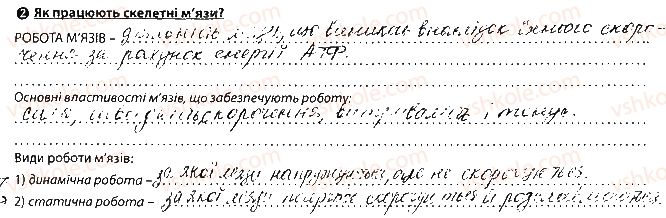 2 Як працюють скелетні м'язи?
РОБОТА М'ЯЗІВ – що виникає внаслідок їхнього скоро-
чення за рахунок енергії АТФ.
Основні властивості м'язів, що забезпечують роботу:
сила, швидкість скорочення, витривалість і тонус.
Види роботи м'язів:
1) динамічна робота – за якої м'язи напружуються, але не скорочуються.
2) статична робота – за якої м'язи